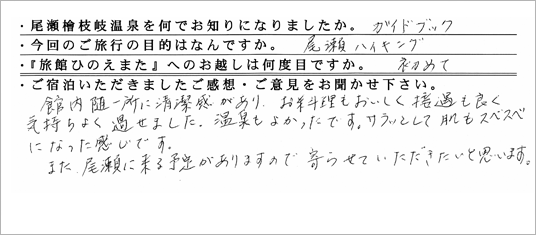 ・尾瀬檜枝岐温泉を何でお知りになりましたか。 ガイドブック
・今回のご旅行の目的はなんですか。 尾瀬ハイキング
・『旅館ひのえまた』へのお越しは何度目ですか。 初めて
・ご宿泊いただきましたご感想・ご意見をお聞かせ下さい。
館内随一所に清潔感があり、お料理もおいしく接遇も良く
気持ちよく過せました。温泉もよかったです。サラッとして肌もスベスベ
になった感じです。
また尾瀬に来る予定がありますので寄らせていただきたいと思います。